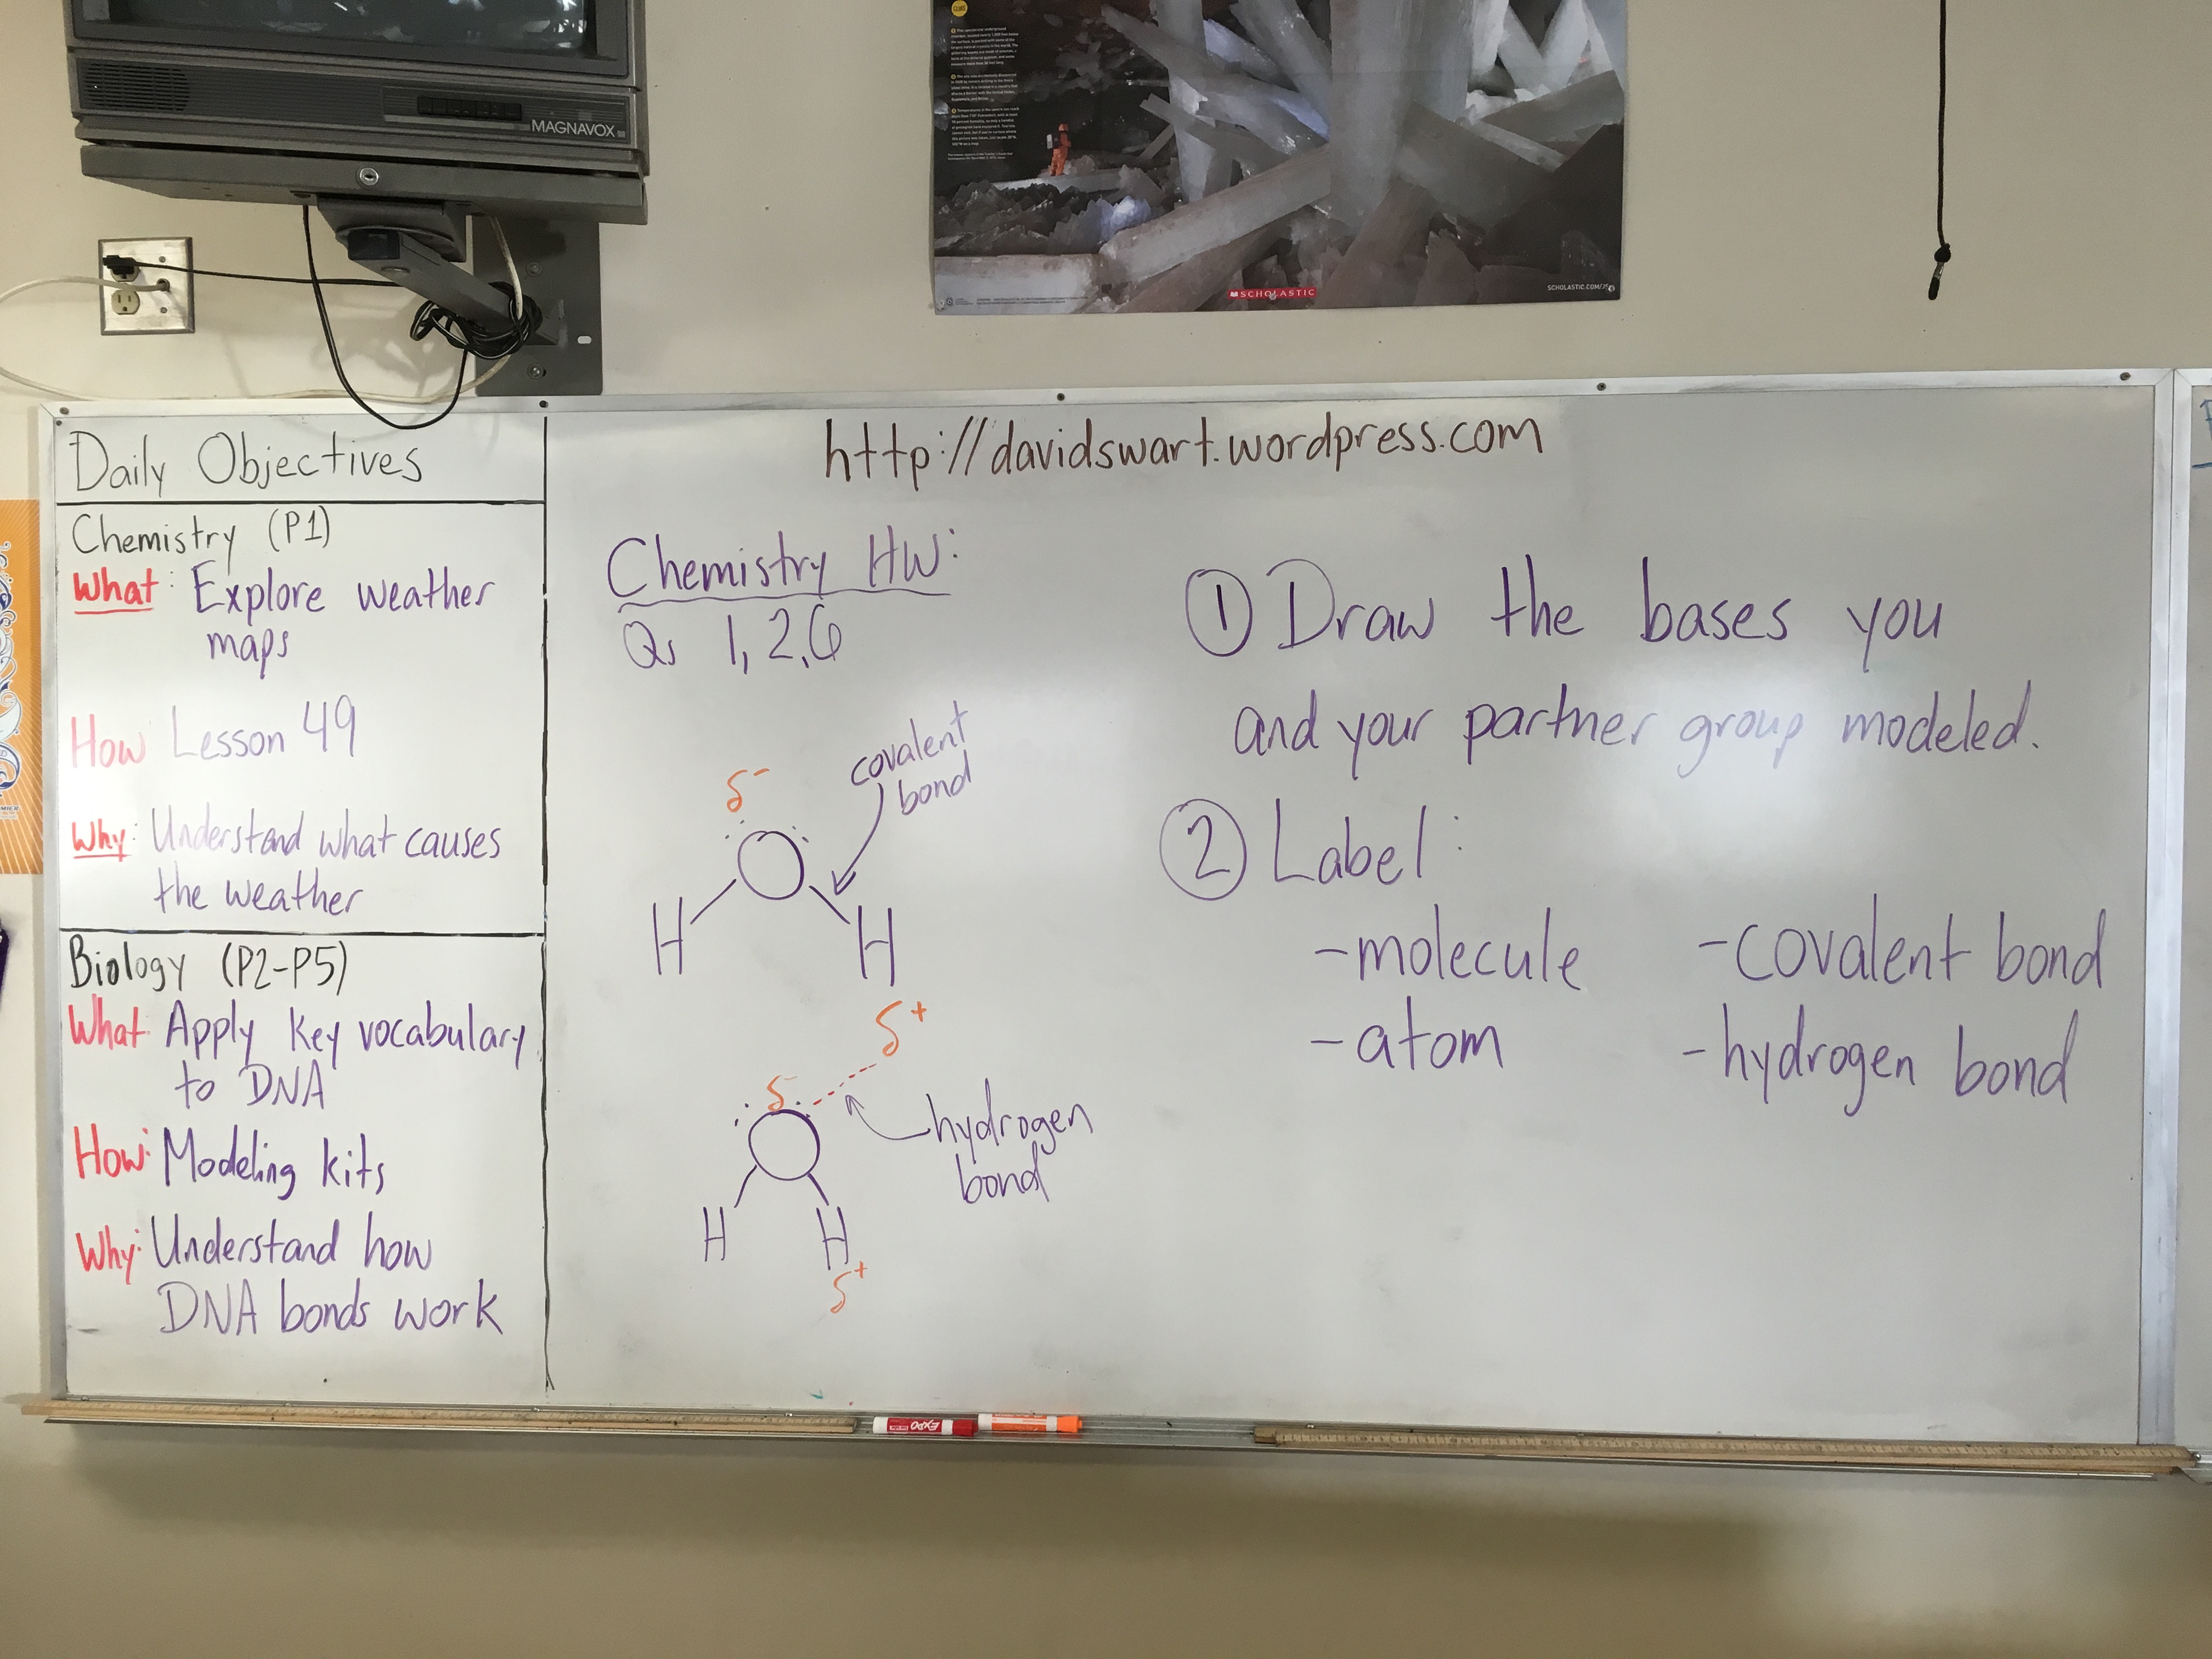 MAGNAVOX
SCHOLASTIC
SCHOLASTIC.COM
Daily Objectives
Chemistry (P1)
What: Explore weather
maps
How Lesson 49
Why: Understand what causes
the weather
Biology (P2-P5)
What: Apply key vocabulary
to DNA
How: Modeling kits
Why: Understand how
DNA bonds work
http://davidswart.wordpress.com
Chemistry HW:
Qs 1, 2, 6
covalent
bond
δ-
O
H H
δ+
δ-
O
hydrogen
bond
H H
δ+
① Draw the bases you
and your partner group modeled.
② Label:
-molecule -covalent bond
-atom -hydrogen bond
EXPO